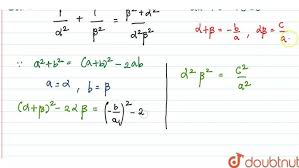 1/α² + 1/β² = (β²+α²)/(α²β²)
α+β = -b/a, αβ = c/a
∵ a²+b² = (a+b)² - 2ab
a=α, b=β
(α+β)² - 2αβ = (-b/a)² - 2
α²β² = c²/a²
doubtnut